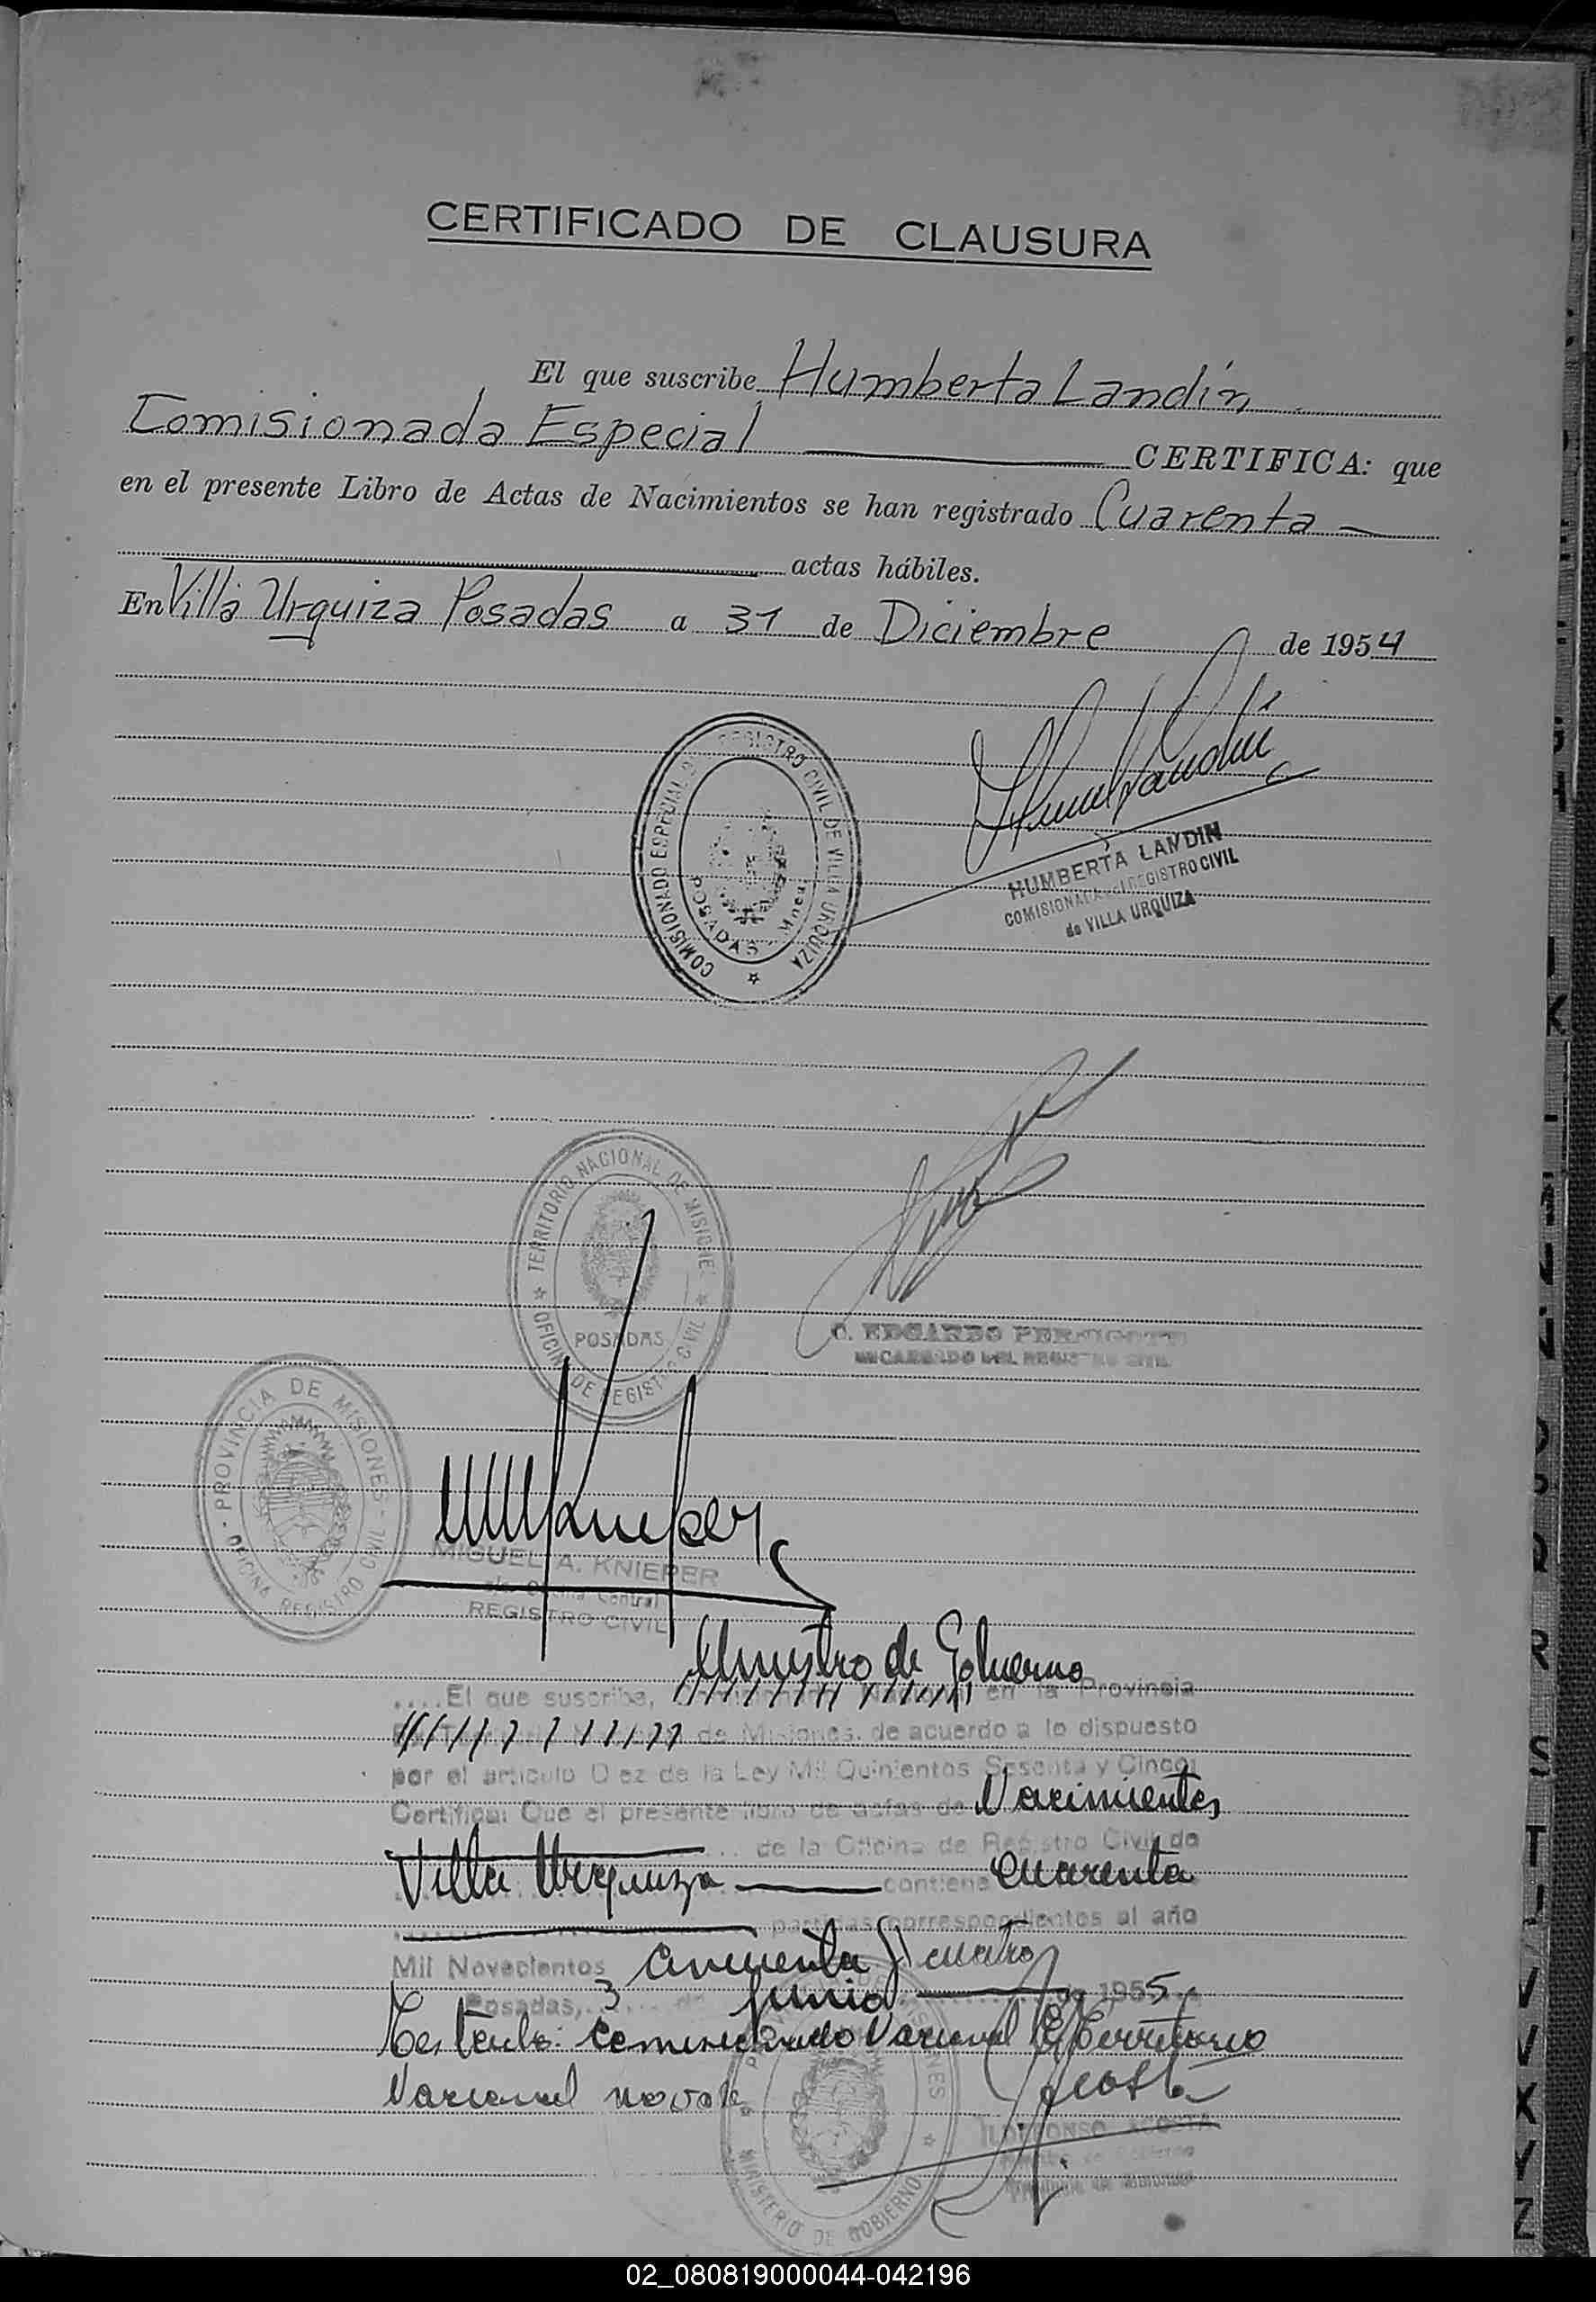 CERTIFICADO DE CLAUSURA
El que suscribe Humberta Landín
Comisionada Especial CERTIFICA: que
en el presente Libro de Actas de Nacimientos se han registrado Cuarenta
actas hábiles.
En Villa Urquiza Posadas a 31 de Diciembre de 1954
COMISIONADO ESPECIAL REGISTRO CIVIL DE VILLA URQUIZA
POSADAS - Mnes.
HUMBERTA LANDIN
COMISIONADA REGISTRO CIVIL
de VILLA URQUIZA
TERRITORIO NACIONAL DE MISIONE
POSADAS
OFICINA DE REGISTRO CIVIL
C. EDGARDO
ENCARGADO DEL REGISTRO CIVIL
PROVINCIA DE MISIONES
OFICINA REGISTRO CIVIL
MIGUEL A. KNIEPER
Central
REGISTRO CIVIL
Ministro de Gobierno
El que suscribe, en la Provincia
de Misiones, de acuerdo a lo dispuesto
por el artículo Diez de la Ley Mil Quinientos Sesenta y Cinco;
Certifica: Que el presente libro de actas de Nacimientos
de la Oficina de Registro Civil de
Villa Urquiza contiene cuarenta
partidas correspondientes al año
Mil Novecientos cincuenta y cuatro
Posadas, 3 de Junio de 1955
Testado: Comisionado Nacional Territorio
Nacional no vale
Acosta
ILDEFONSO ACOSTA
MINISTERIO DE GOBIERNO
K
R
S
T
V
X
Y
Z
02_080819000044-042196